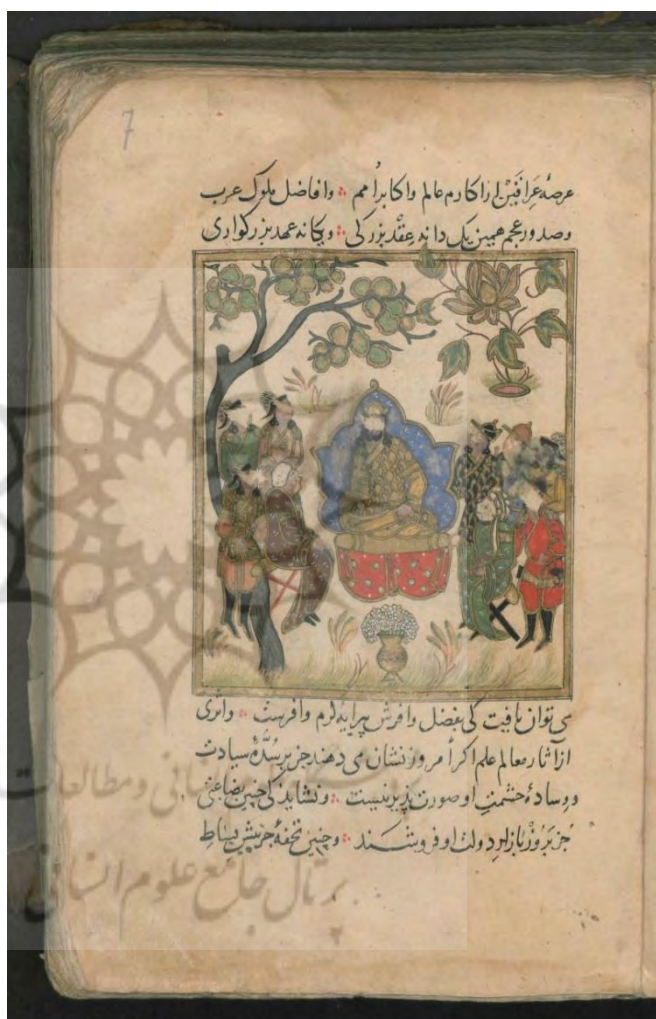 7
عرصهٔ عراقین از اکارم عالم و اکابر امم ؞ و افاضل ملوک عرب
و صدور عجم همین یک دانه عقد بزرگی ؞ و یکانه عهد بزرکواری
می توان یافت کی بفضل وافرش پیرایه کرم وافرست ؞ و اثری
از آثار معالم علم اکر امروز نشان می دهند جز بر سُدّهٔ سیادت
و وسادهٔ حشمت او صورت پذیر نیست ؞ و نشاید کی چنین بضاعتی
جز بروز بازار دولت او فروشند ؞ و چنین تحفهٔ جز پیش بساط
انسانی و مطالعات
پرتال جامع علوم انسانی